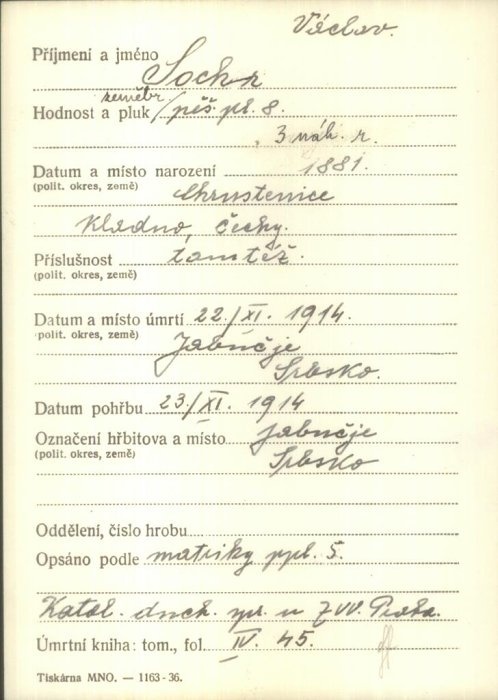 Václav.
Příjmení a jméno Sochr
zeměbr.
Hodnost a pluk /pěš. pl. 8.
, 3 náh. r.
Datum a místo narození 1881.
(polit. okres, země) Chrustenice
Kladno, Čechy.
Příslušnost tamtéž.
(polit. okres, země)
Datum a místo úmrtí 22./XI. 1914.
(polit. okres, země) Jabučje
Srbsko.
Datum pohřbu 23./XI. 1914
Označení hřbitova a místo Jabučje
(polit. okres, země) Srbsko
Oddělení, číslo hrobu
Opsáno podle matriky ppl. 5.
Katol. duch. spr. u ZVV. Praha.
Úmrtní kniha: tom., fol. IV. 45.
Tiskárna MNO. — 1163-36.